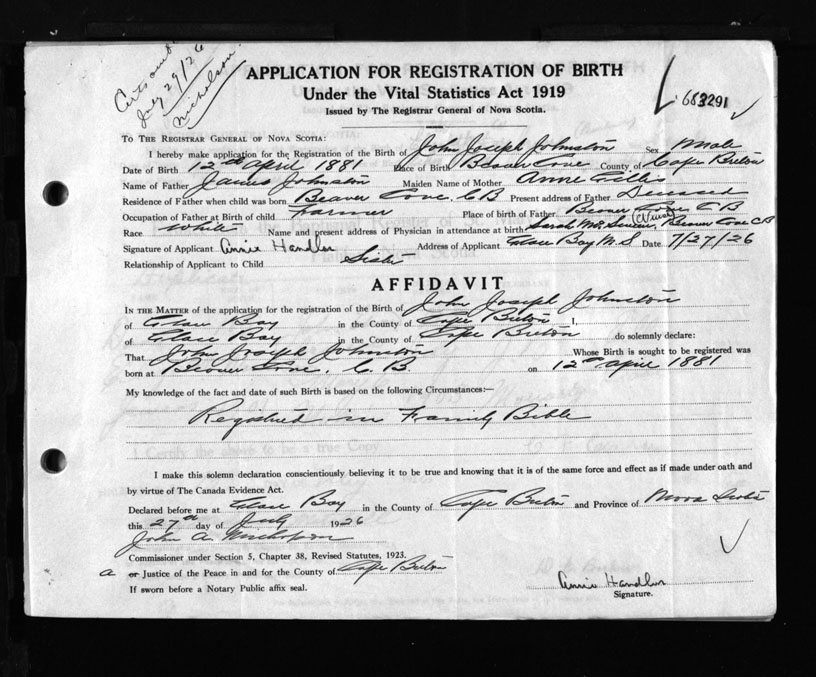 Certs out
July 29/26
Nicholson
683291
APPLICATION FOR REGISTRATION OF BIRTH
Under the Vital Statistics Act 1919
Issued by The Registrar General of Nova Scotia.
To the Registrar General of Nova Scotia:
I hereby make application for the Registration of the Birth of John Joseph Johnston Sex Male
Date of Birth 12th April 1881 Place of Birth Beaver Cove County of Cape Breton
Name of Father James Johnston Maiden Name of Mother Anne Gillis
Residence of Father when child was born Beaver Cove, C.B. Present address of Father Deceased
Occupation of Father at Birth of child Farmer Place of birth of Father Beaver Cove CB
Race White Name and present address of Physician in attendance at birth Sarah (Nurse) Beaver Cove CB
Signature of Applicant Annie Handlin Address of Applicant Glace Bay N.S Date 7/27/26
Relationship of Applicant to Child Sister
AFFIDAVIT
In the Matter of the application for the registration of the Birth of John Joseph Johnston
of Glace Bay in the County of Cape Breton I,
of Glace Bay in the County of Cape Breton do solemnly declare:
That John Joseph Johnston Whose Birth is sought to be registered was
born at Beaver Cove, C.B. on 12th April 1881
My knowledge of the fact and date of such Birth is based on the following Circumstances:—
Registered in Family Bible
I Certify the above to be a true Copy
I make this solemn declaration conscientiously believing it to be true and knowing that it is of the same force and effect as if made under oath and
by virtue of The Canada Evidence Act.
Declared before me at Glace Bay in the County of Cape Breton and Province of Nova Scotia
this 27th day of July 1926
John A. Nicholson
Commissioner under Section 5, Chapter 38, Revised Statutes, 1923.
a or Justice of the Peace in and for the County of Cape Breton
If sworn before a Notary Public affix seal.
Annie Handlin
Signature.